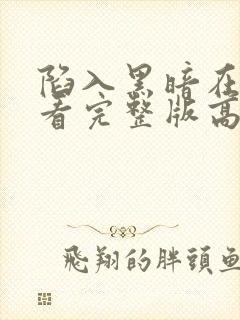 陷入黑暗在
看完整版高
飛翔的胖頭魚